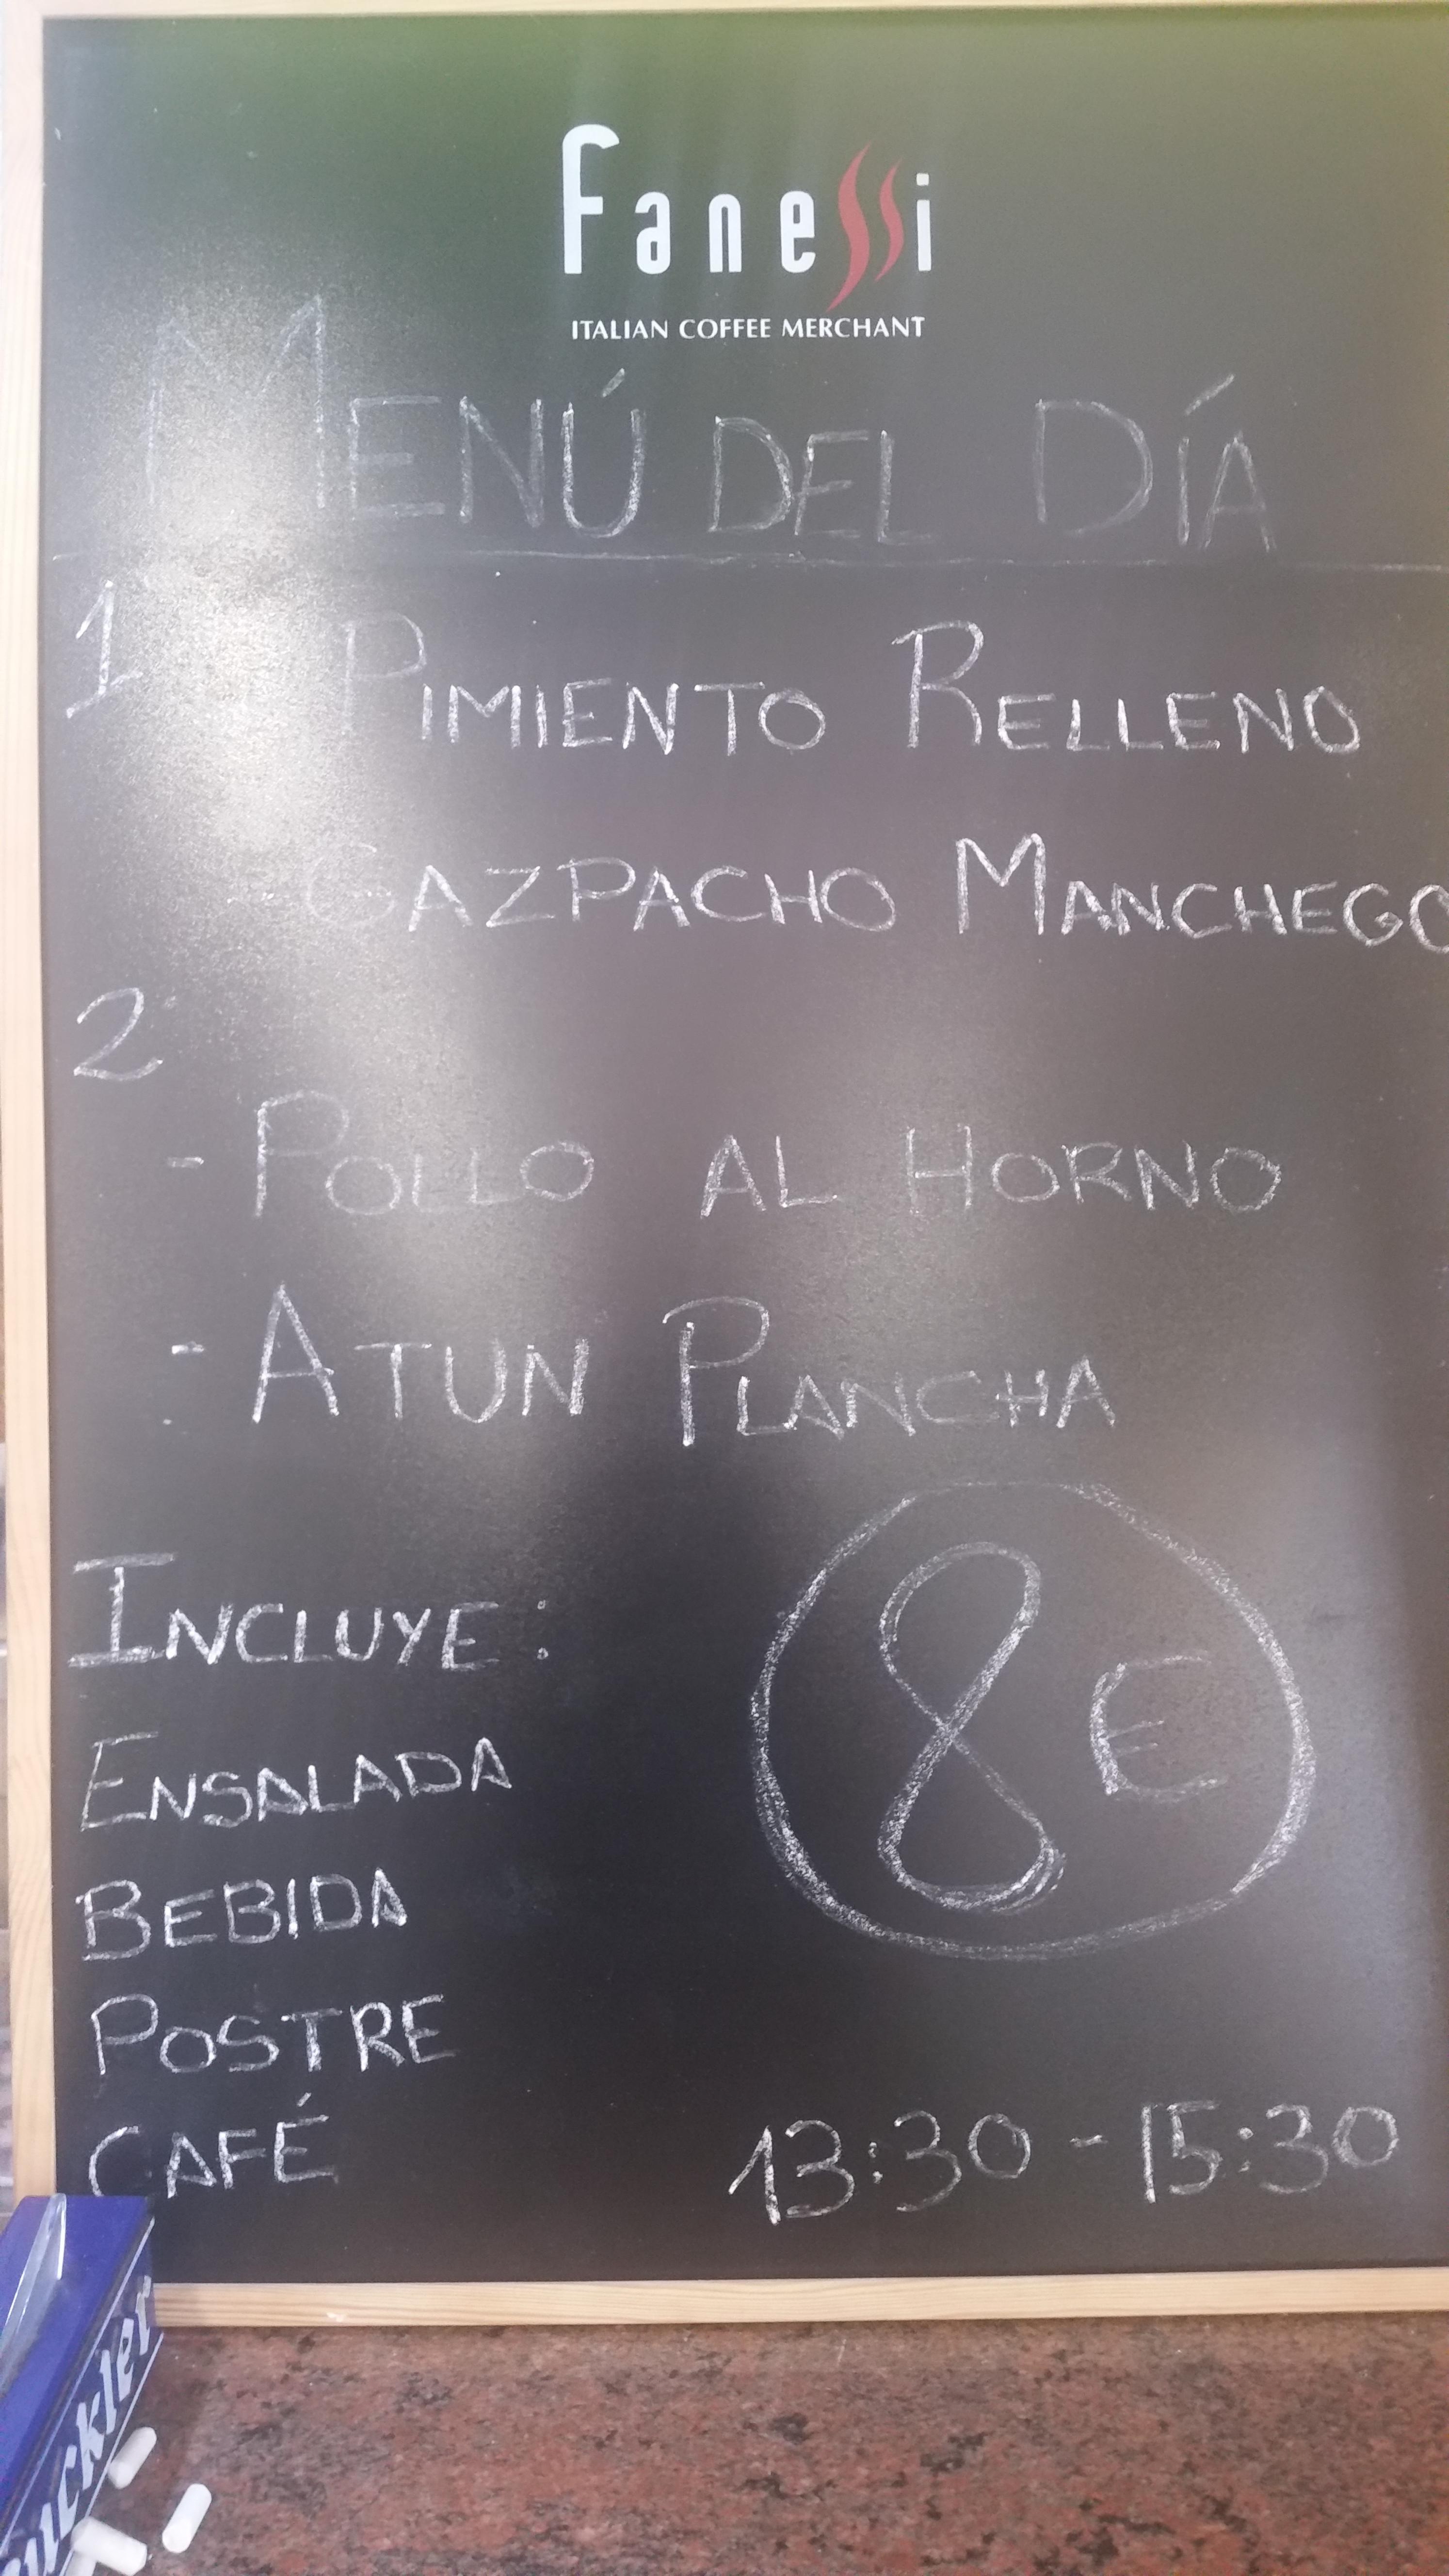 Fanessi
ITALIAN COFFEE MERCHANT
MENÚ DEL DÍA
1
PIMIENTO RELLENO
GAZPACHO MANCHEGO
2
- POLLO AL HORNO
- ATUN PLANCHA
INCLUYE:
ENSALADA
BEBIDA
POSTRE
CAFÉ
8 €
13:30 - 15:30